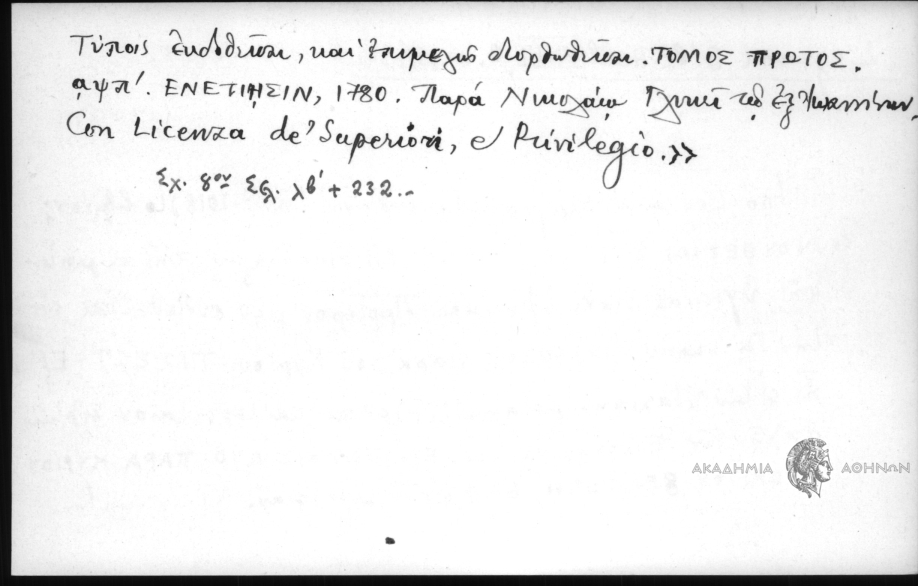 Τύποις ἐκδοθεῖσαι, καὶ ἐπιμελῶς διορθωθεῖσαι. ΤΟΜΟΣ ΠΡΩΤΟΣ.
͵αψπ'. ΕΝΕΤΙΗΣΙΝ, 1780. Παρὰ Νικολάῳ Γλυκεῖ τῷ ἐξ Ἰωαννίνων.
Con Licenza de' Superiori, e Privilegio.»
Σχ. 8ον Σελ. λβ' + 232.-
ΑΚΑΔΗΜΙΑ ΑΘΗΝΩΝ